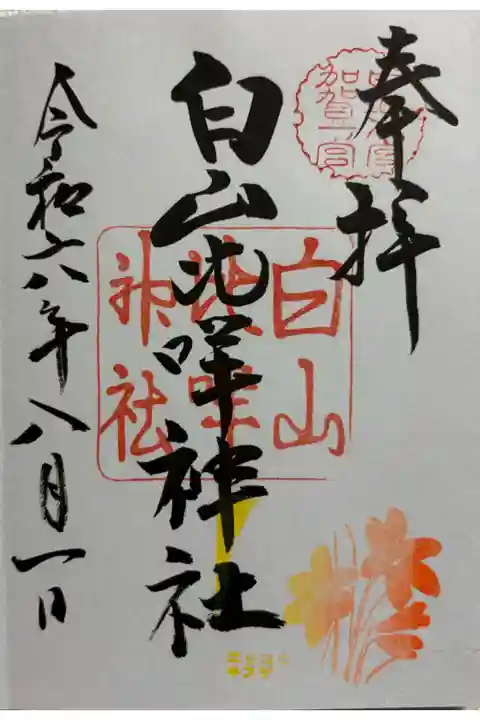 奉拝
加賀一宮
白山比咩神社
白山
比咩
神社
令和六年八月一日